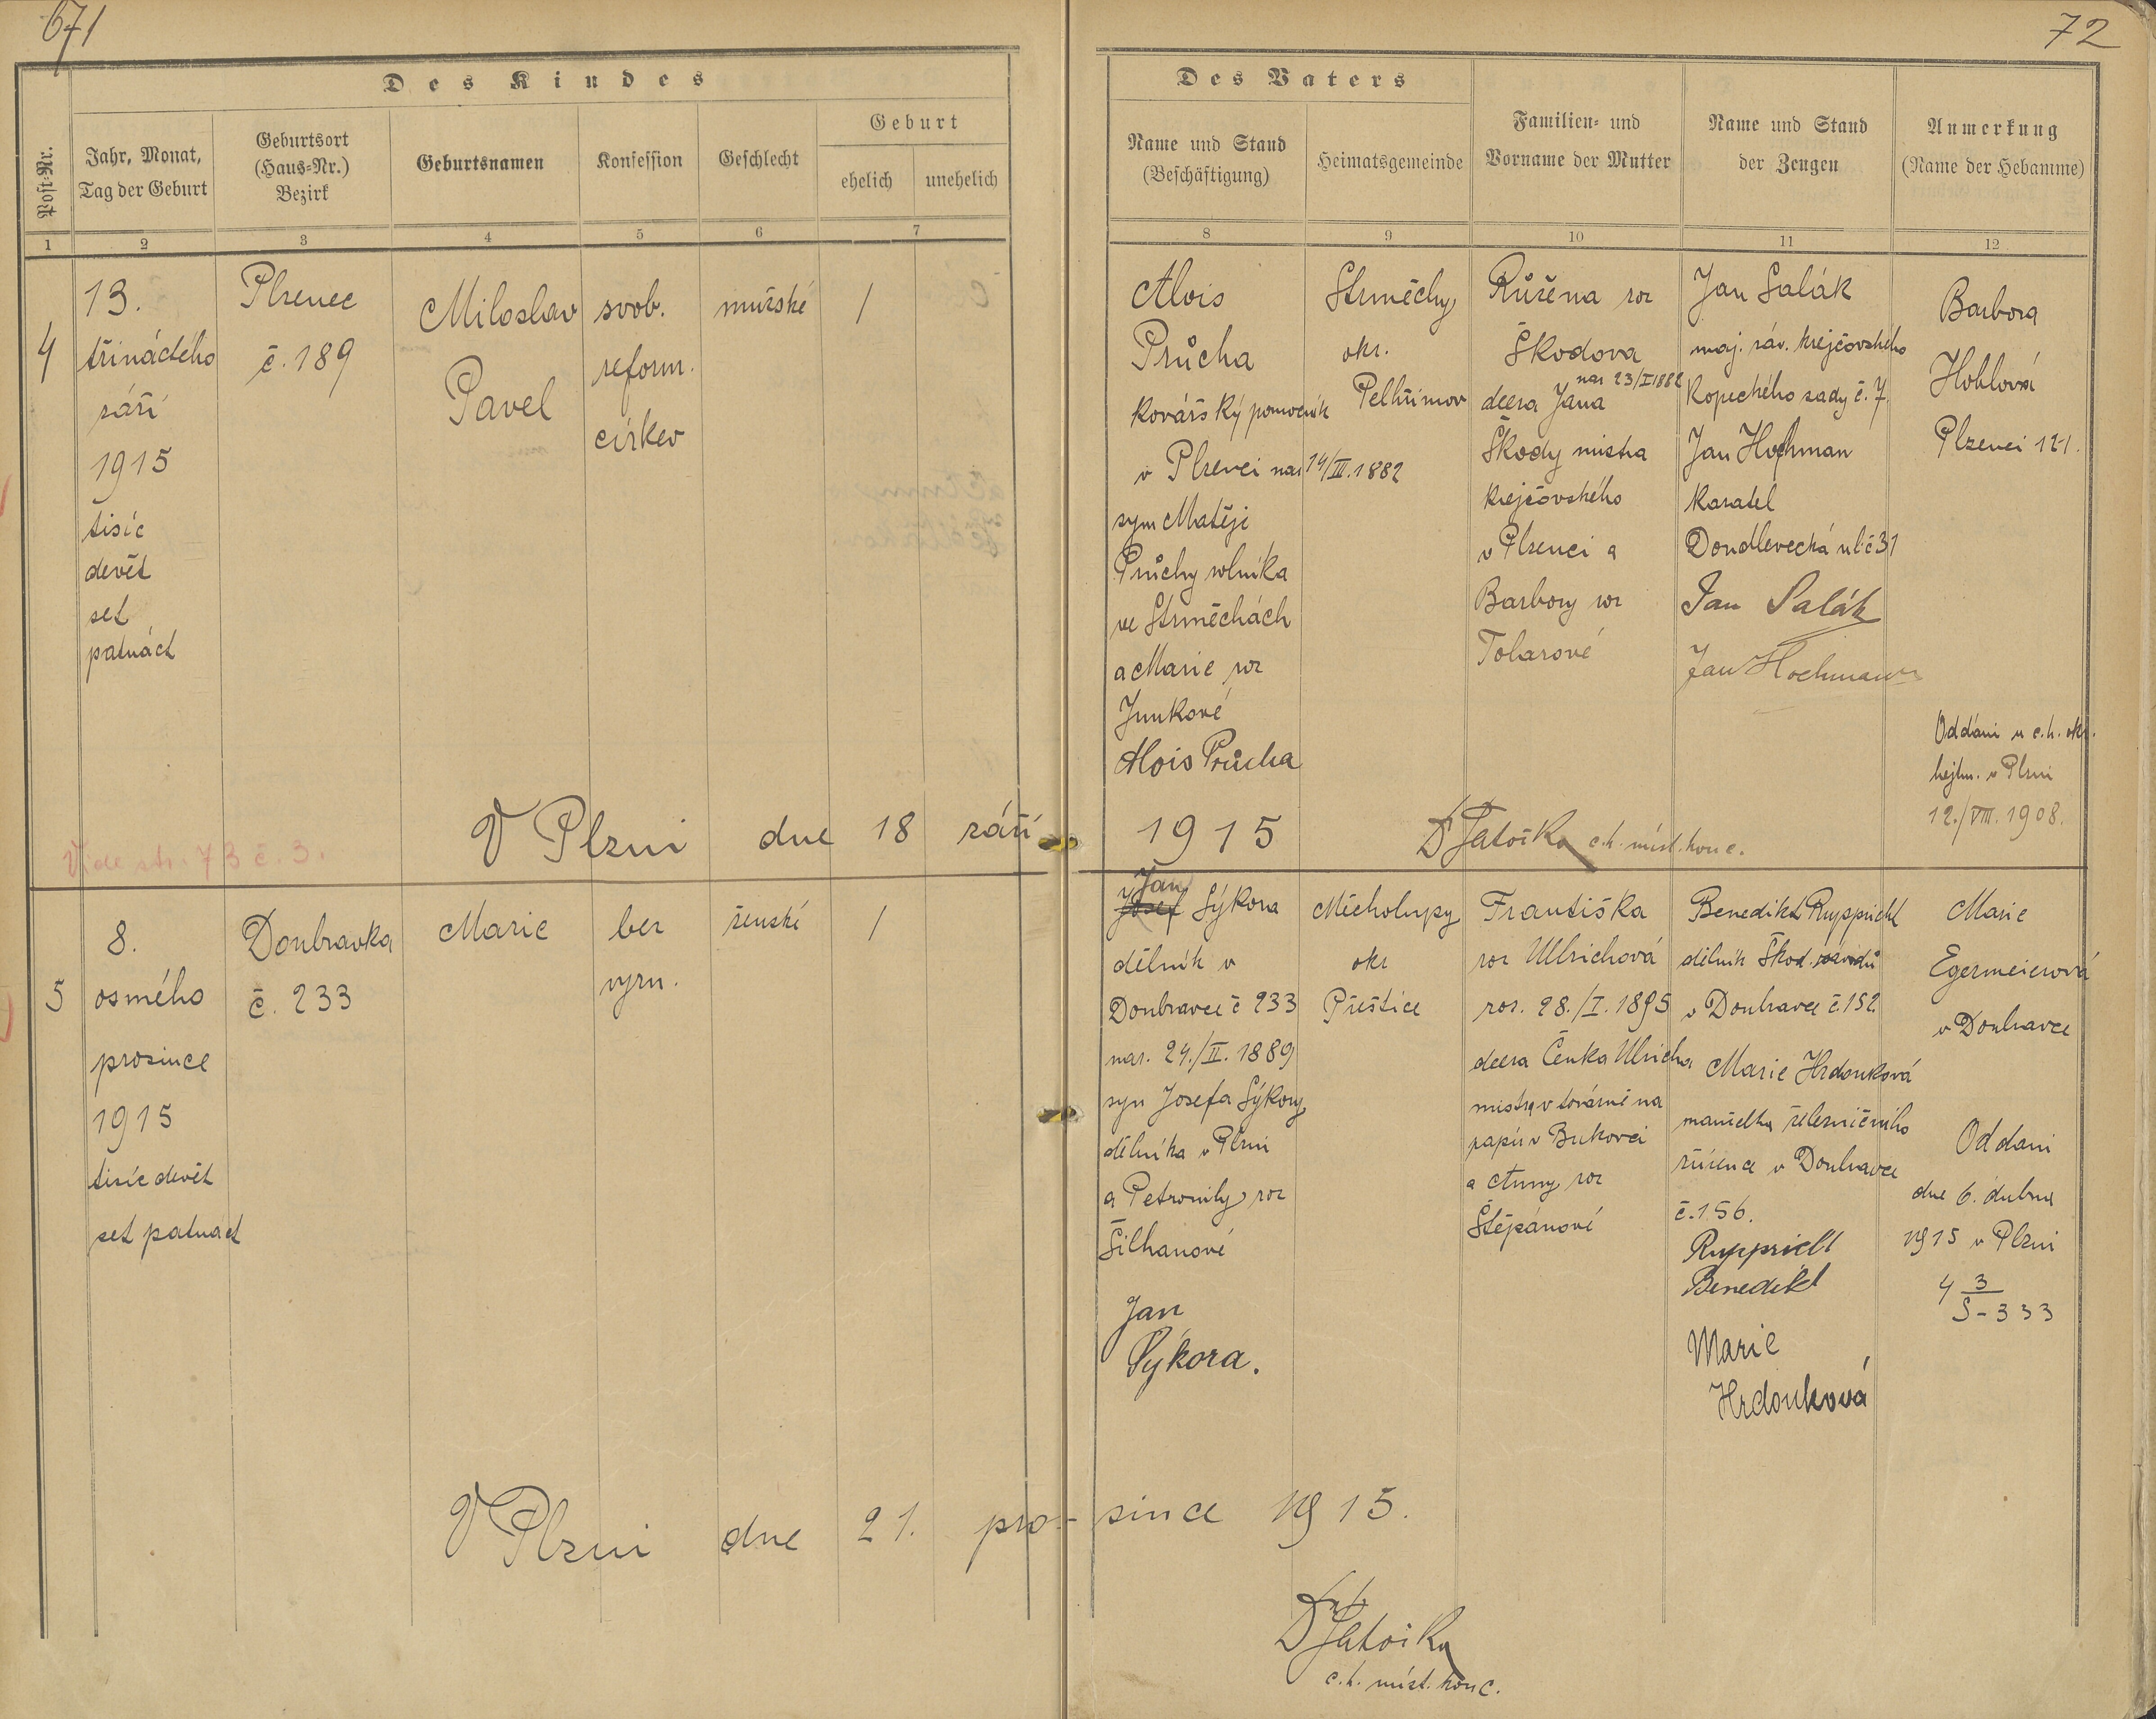 671
72
Des Kindes
Des Vaters
Post-Nr.
Jahr, Monat,
Tag der Geburt
Geburtsort
(Haus-Nr.)
Bezirk
Geburtsnamen
Konfession
Geschlecht
Geburt
ehelich
unehelich
Name und Stand
(Beschäftigung)
Heimatsgemeinde
Familien- und
Vorname der Mutter
Name und Stand
der Zeugen
Anmerkung
(Name der Hebamme)
1
2
3
4
5
6
7
8
9
10
11
12
4
13.
třináctého
září
1915
tisíc
devět
set
patnáct
Plzenec
č. 189
Miloslav
Pavel
svob.
reform.
církev
mužské
/
Alois
Průcha
kovářský pomocník
v Plzenci nar 14/III. 1882
syn Matěje
Průchy rolníka
ve Strměchách
a Marie roz
Junkové
Alois Průcha
Strměchy
okr.
Pelhřimov
Růžena roz
Škodova
nar 23/I 1882
dcera Jana
Škody mistra
krejčovského
v Plzenci a
Barbory roz
Tolarové
Jan Salák
maj. záv. krejčovského
Kopeckého sady č. 7.
Jan Hochman
karatel
Doudlevecká ul. č 31
Jan Salák
Jan Hochmann
Barbora
Hoblová
Plzenci 121.
Oddáni u c.k. okr.
hejtm. v Plzni
12./VIII. 1908.
V Plzni dne 18 září 1915
c.k. míst. konc.
Vide str. 73 č. 3.
5
8.
osmého
prosince
1915
tisíc devět
set patnáct
Doubravka
č. 233
Marie
bez
vyzn.
ženské
/
Jan
Josef Sýkora
dělník v
Doubravce č 233
nar. 24./II. 1889
syn Josefa Sýkory
dělníka v Plzni
a Petronily roz
Šilhanové
Jan
Sýkora.
Měcholupy
okr
Přeštice
Františka
roz Ullrichová
roz. 28./I. 1895
dcera Čeňka Ulricha
mistra v továrně na
papír v Bukovci
a Anny roz
Štěpánové
Benedikt Ruppricht
dělník Škod. závodů
v Doubravce č. 152
Marie Hrdonková
manželka železničního
zřízence v Doubravce
č. 156.
Ruppricht
Benedikt
Marie
Hrdonková
Marie
Egermeierová
v Doubravce
Oddáni
dne 6. dubna
1915 v Plzni
4 3/5-333
V Plzni dne 21. pro- since 1915.
c.k. míst. konc.